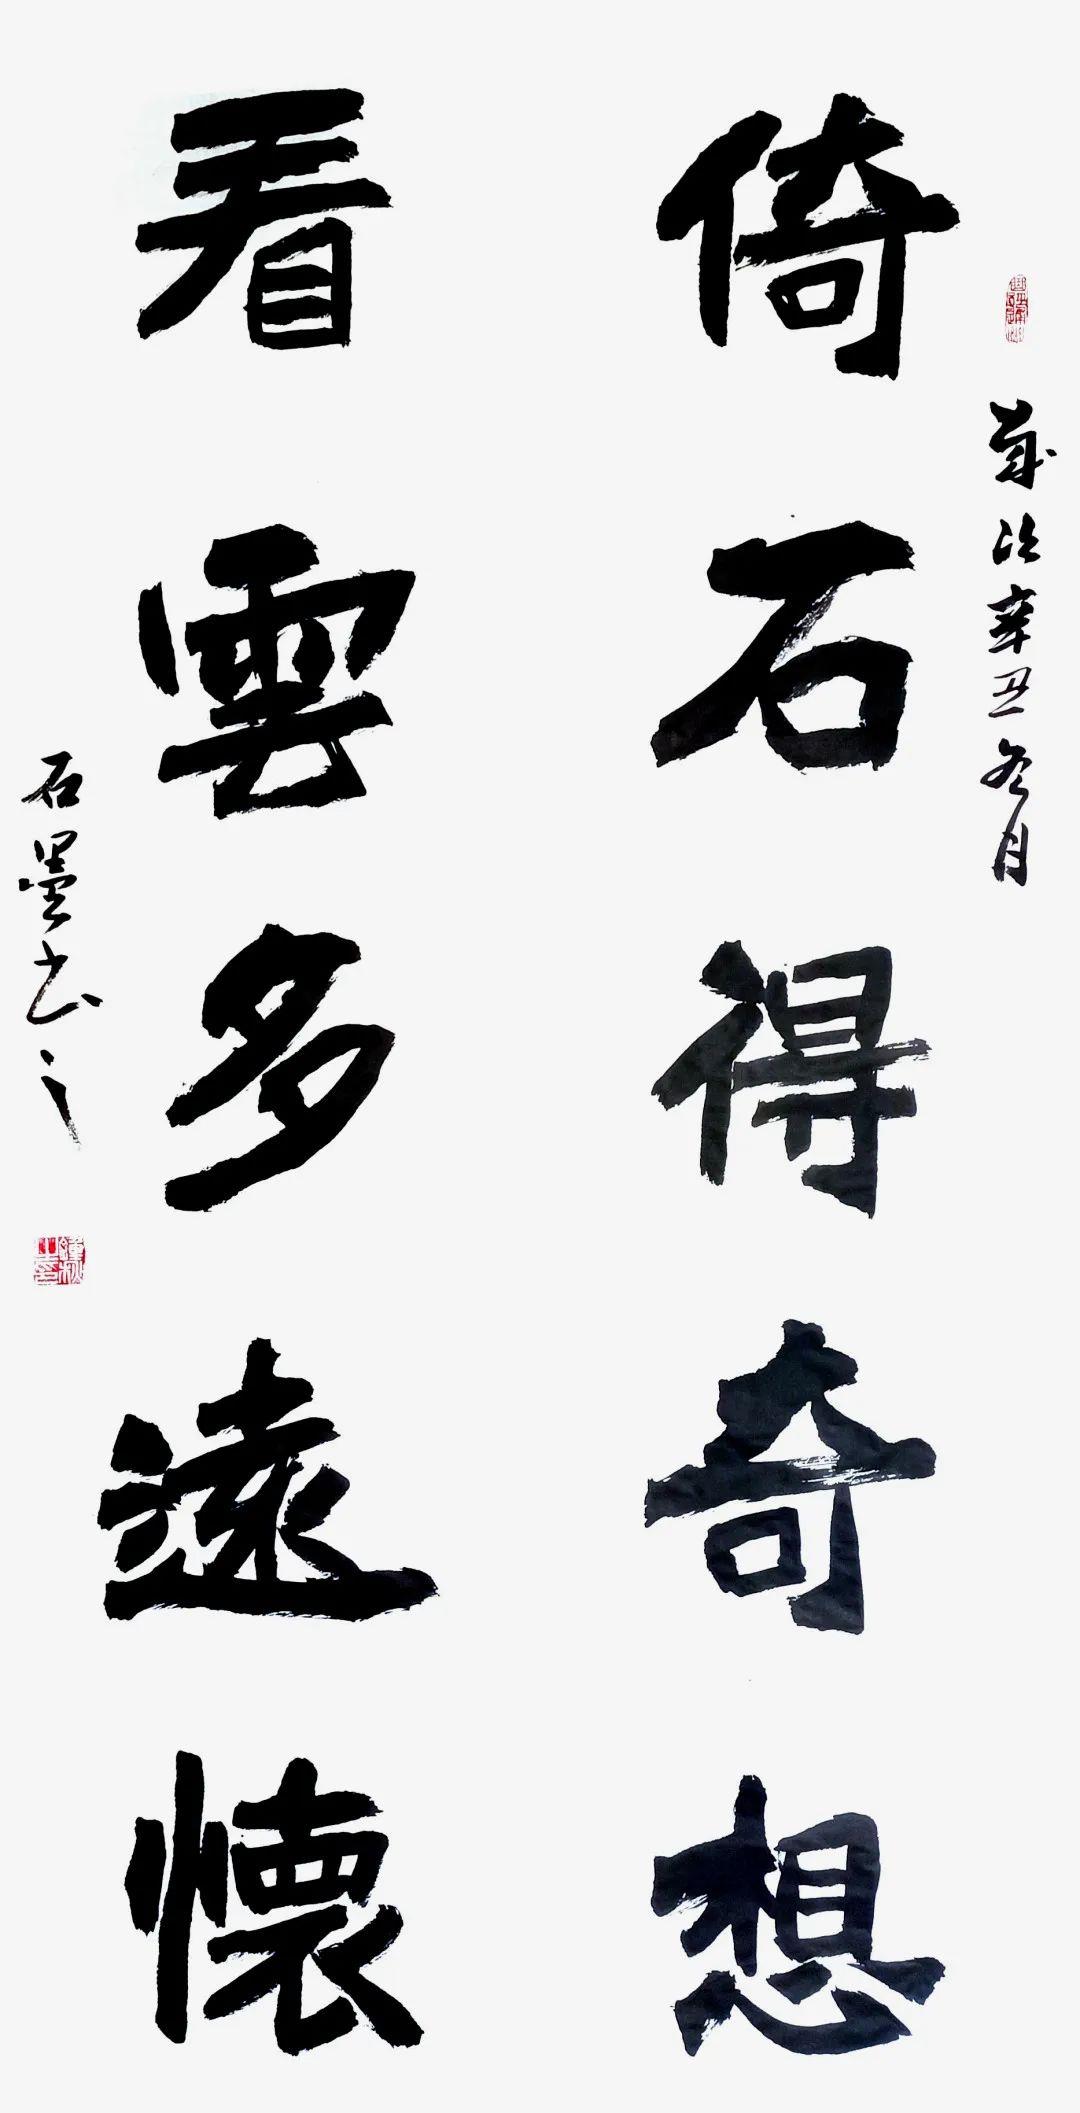 歲次辛丑冬月
倚石得奇想
看雲多遠懷
石墨書